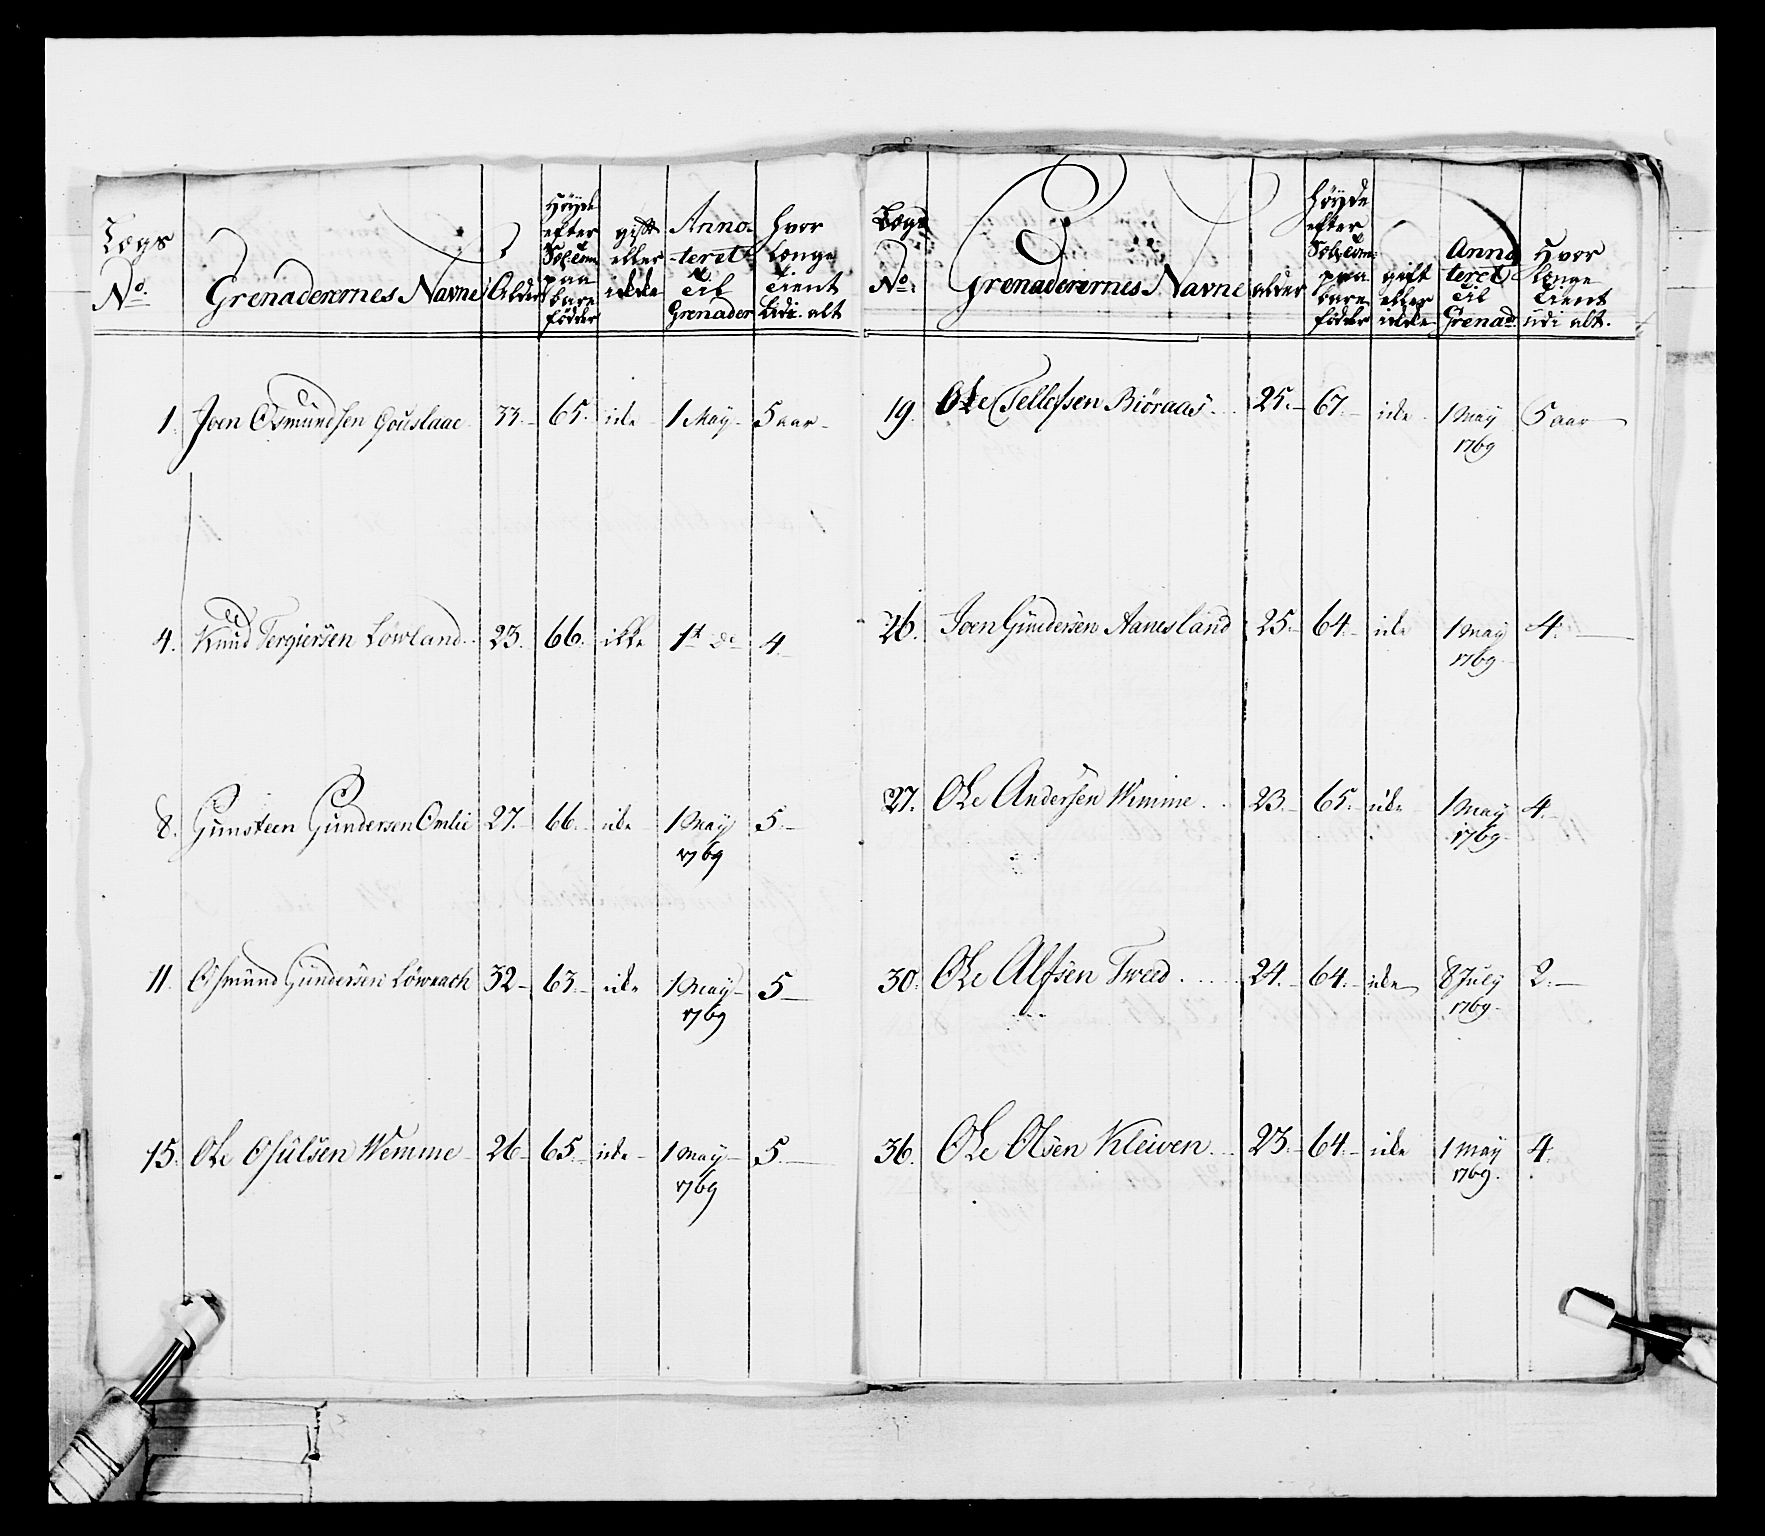 Lægs No.
Grenaderernes Navne
Alder
Höyde efter paa bare födder
gift eller ikke
Anno- teret Til Grenader
Hvor Længe Tient udi alt
1. Joen Osmundsen 33. 65. ike 1 May 5 aar
4. Knud Tergiersen Löwland 23. 66. ikke 1st do 4
8. Gunsteen Gundersen Omlie 27. 66. ike 1 May 5.
1769
11. Osmund Gundersen 32 63. ike 1 May 5
1769
15. Ole Osulsen Wemme 26 65 ike 1 May 5.
1769
Lægs No.
Grenaderernes Navne
alder
Höyde efter paa bare födder
gift eller ikke
Anno teret Til Grenad.
Hvor Længe Tient udi alt.
19. Ole Tellefsen Biöraas 25. 67. ike 1 May 5 aar
1769
26. Joen Gundersen Aanesland 25. 64. ike 1 May 4.
1769
27. Ole Andersen Wemme 23. 65. ike 1 May 4.
1769
30. Ole Alfsen Tweed 24. 64. ike 8 July 2.
1769
36. Ole Olsen Kleiven 23. 64. ike 1 May 4.
1769.